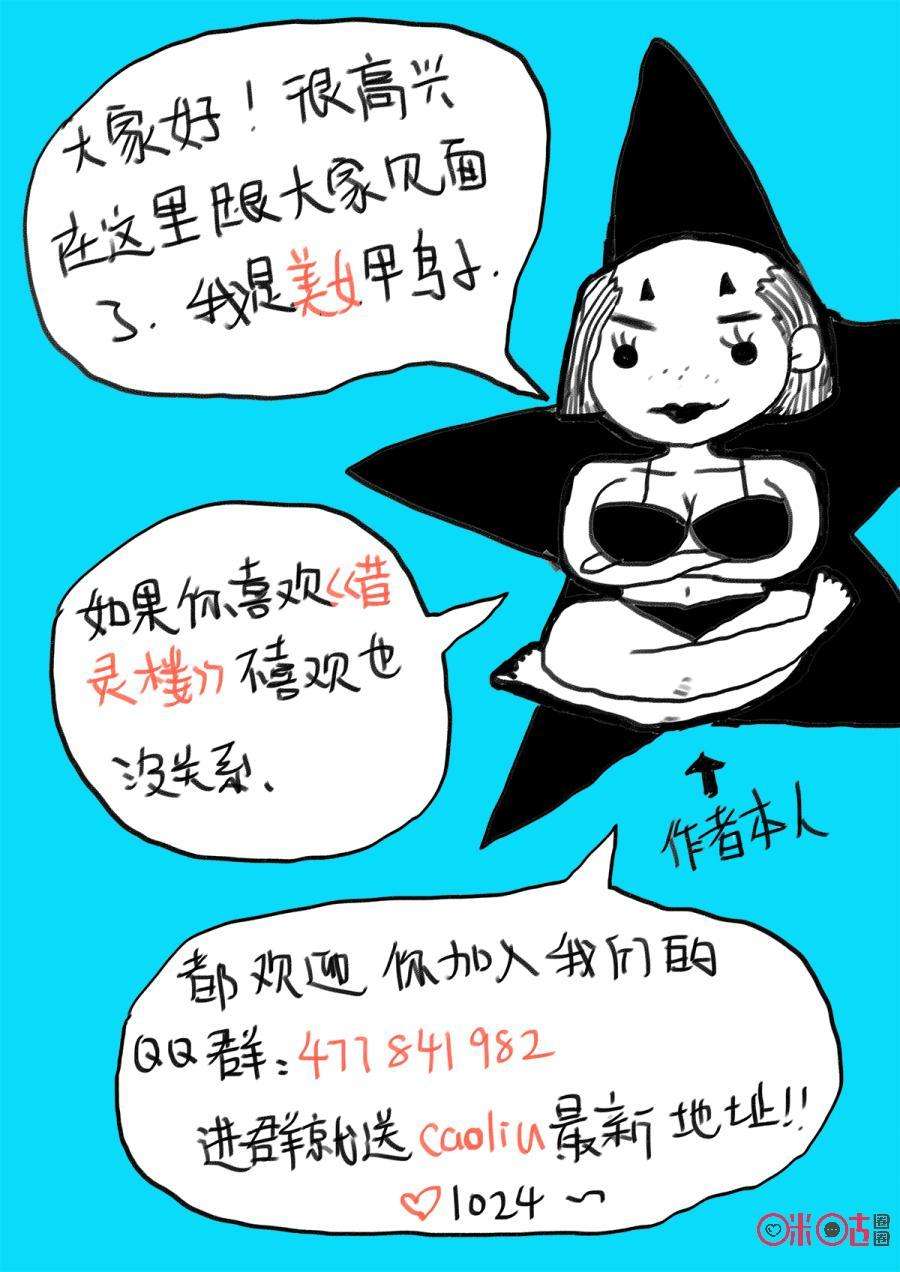 大家好！很高兴
在这里跟大家见面
了．我是美女甲鸟子．
如果你喜欢《借
灵楼》不喜欢也
没关系、
作者本人
都欢迎你加入我们的
QQ群：477841982
进群就送caoliu最新地址！！
♡1024～
咪咕圈圈